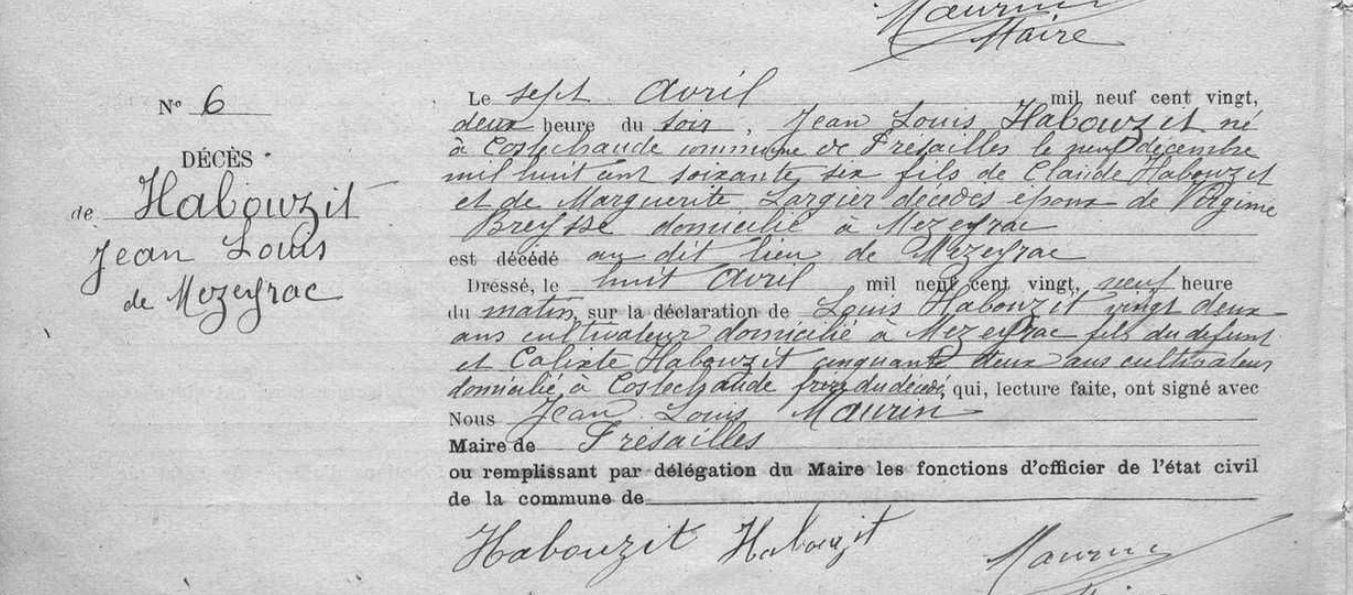 Maurin
Maire
N° 6
DÉCÈS
de Habouzit
Jean Louis
de Mezeyrac
Le sept Avril mil neuf cent vingt,
deux heure du soir, Jean Louis Habouzit né
à Costechaude commune de Fresailles le neuf décembre
mil huit cent soixante six fils de Claude Habouzit
et de Marguerite Largier décédés époux de Virginie
Breysse domicilié à Mezeyrac
est décédé au dit lieu de Mezeyrac
Dressé, le huit Avril mil neuf cent vingt, neuf heure
du matin, sur la déclaration de Louis Habouzit vingt deux
ans cultivateur domicilié à Mezeyrac fils du défunt
et Calixte Habouzit cinquante deux ans cultivateur
domicilié à Costechaude frère du décédé, qui, lecture faite, ont signé avec
Nous Jean Louis Maurin
Maire de Fresailles
ou remplissant par délégation du Maire les fonctions d'officier de l'état civil
de la commune de
Habouzit Habouzit Maurin